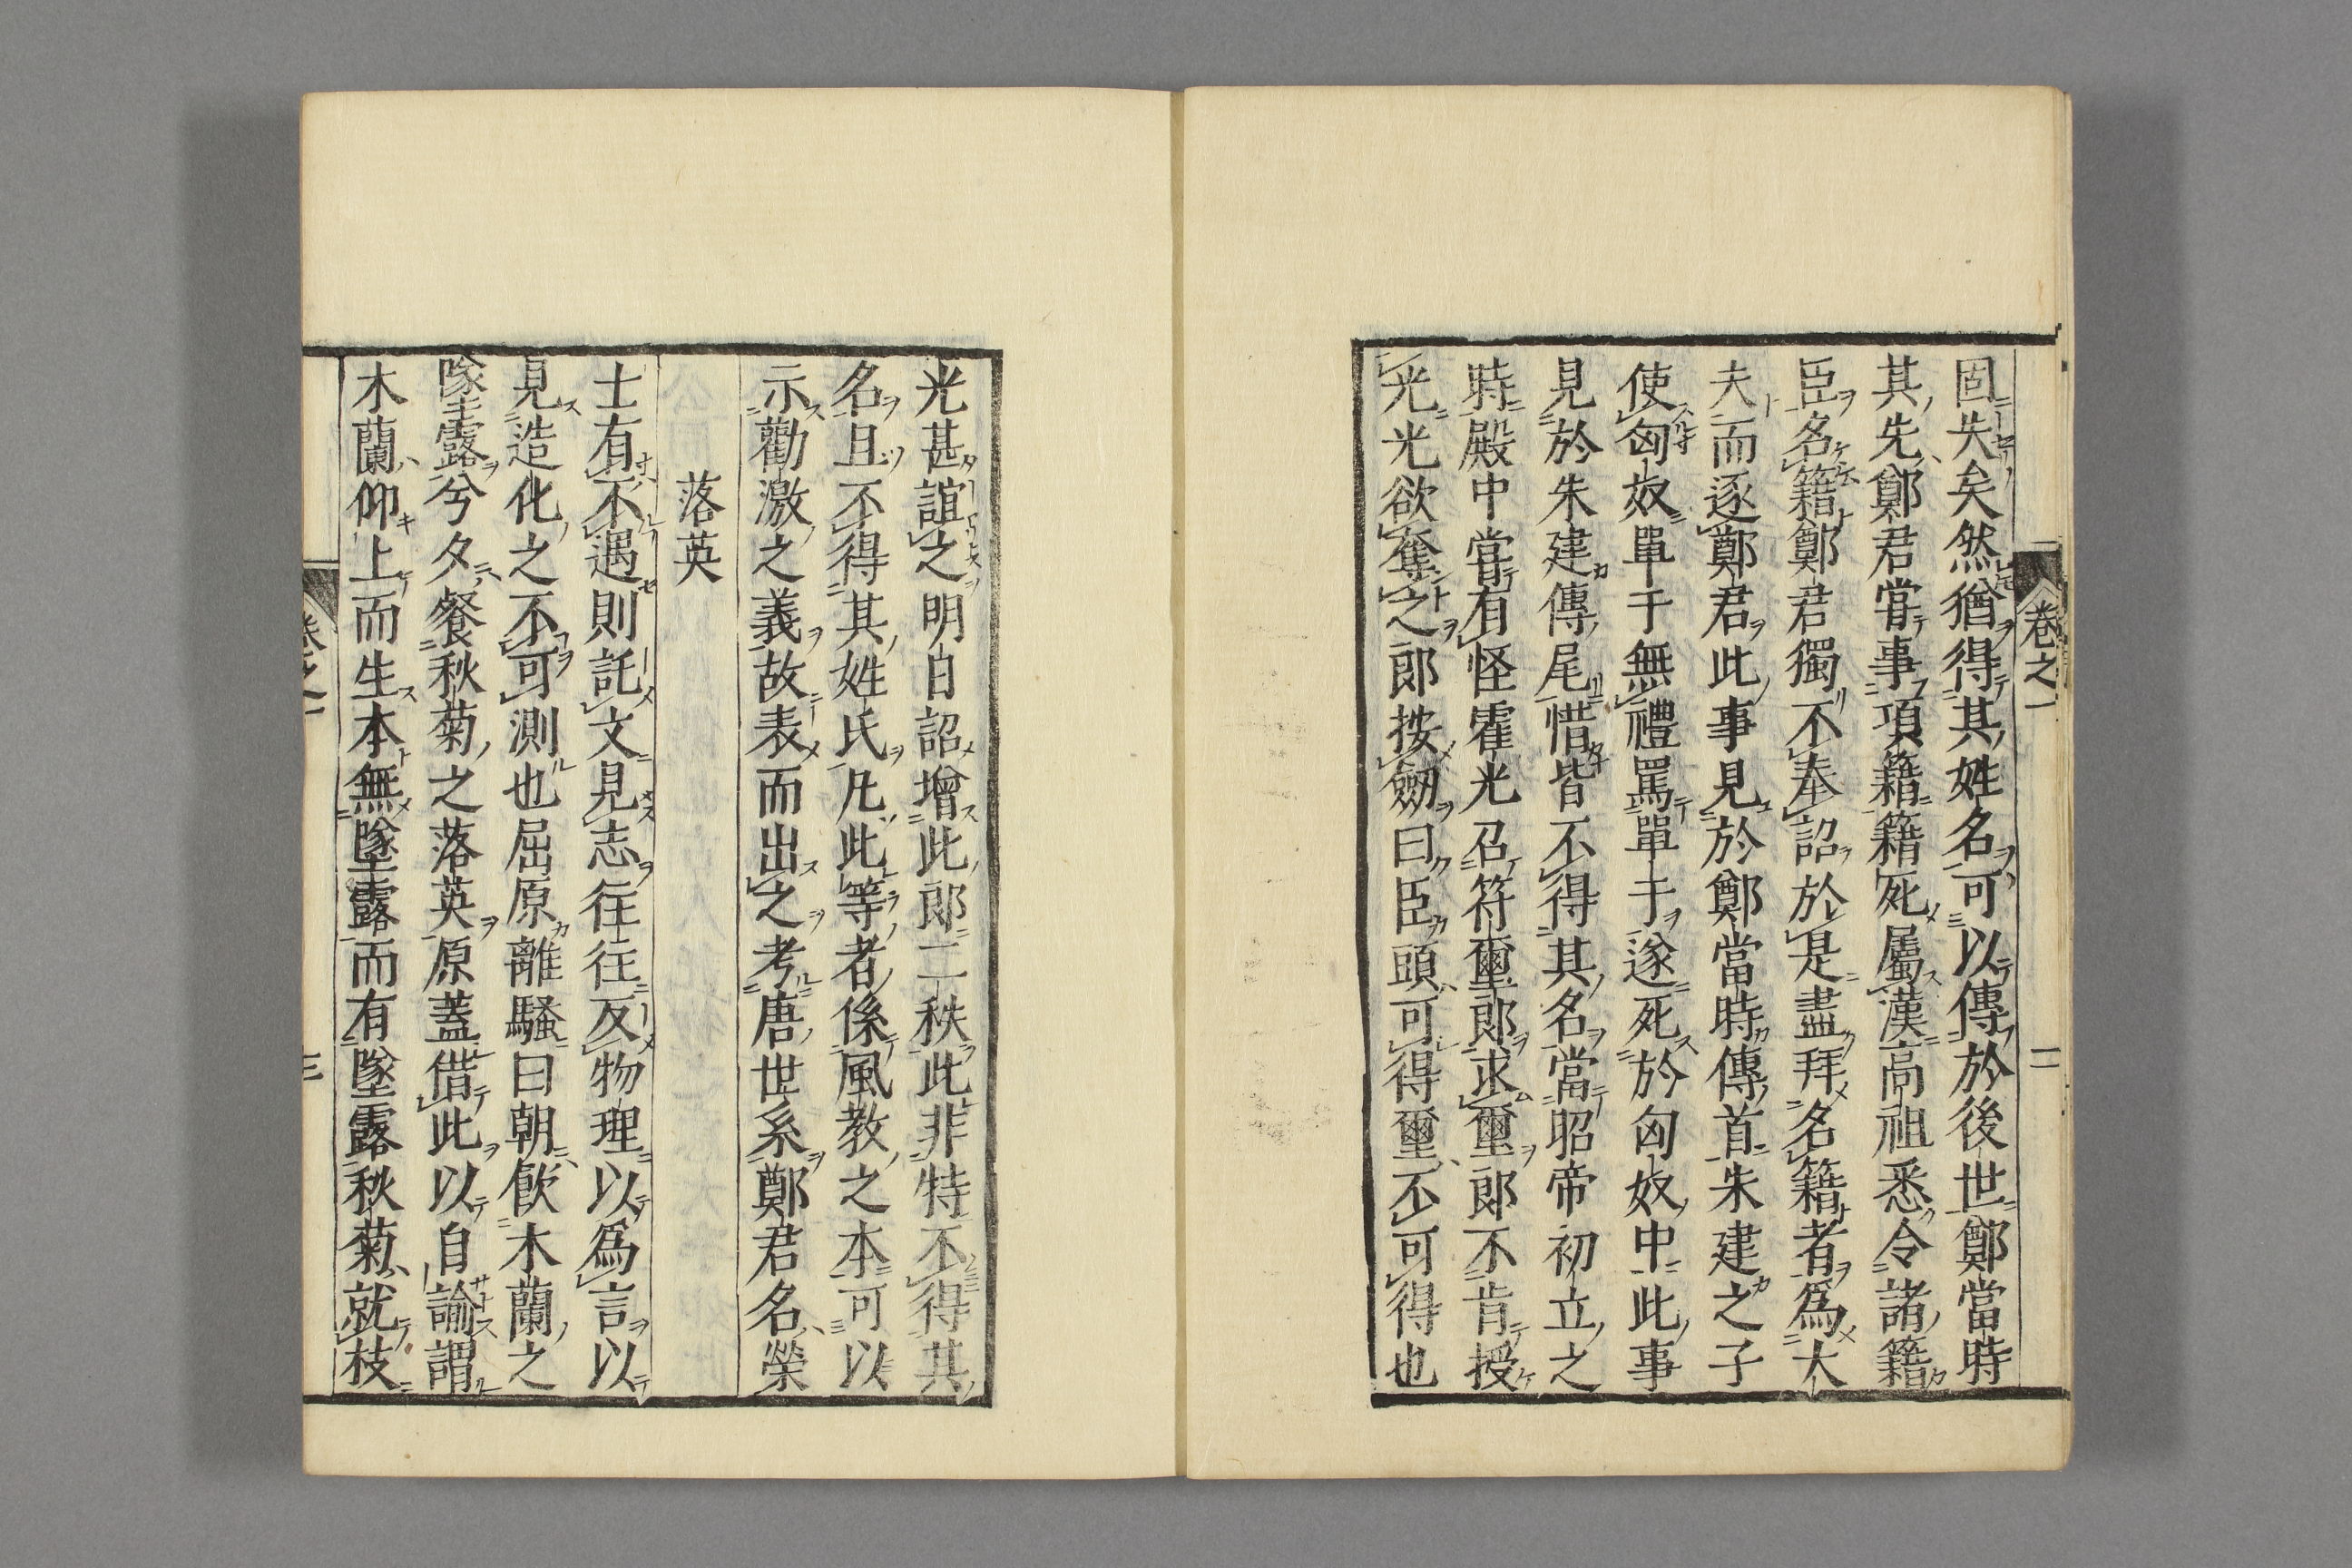 固失矣然猶得其姓名可以傳於後世鄭當時
其先鄭君嘗事項籍籍死屬漢高祖悉令諸籍
臣名籍鄭君獨不奉詔於是盡拜名籍者爲大
夫而逐鄭君此事見於鄭當時傳首朱建之子
使匈奴單于無禮罵單于遂死於匈奴中此事
見於朱建傳尾惜皆不得其名當昭帝初立之
時殿中嘗有怪霍光召符璽郎求璽郎不肯授
光光欲奪之郎按劒曰臣頭可得璽不可得也
卷之一
二
光甚誼之明日詔增此郎二秩此非特不得其
名且不得其姓氏凡此等者係風教之本可以
示勸激之義故表而出之考唐世系鄭君名榮
落英
士有不遇則託文見志往往反物理以爲言以
見造化之不可測也屈原離騷曰朝飮木蘭之
墜露兮夕餐秋菊之落英原蓋借此以自諭謂
木蘭仰上而生本無墜露而有墜露秋菊就枝
卷之一
三